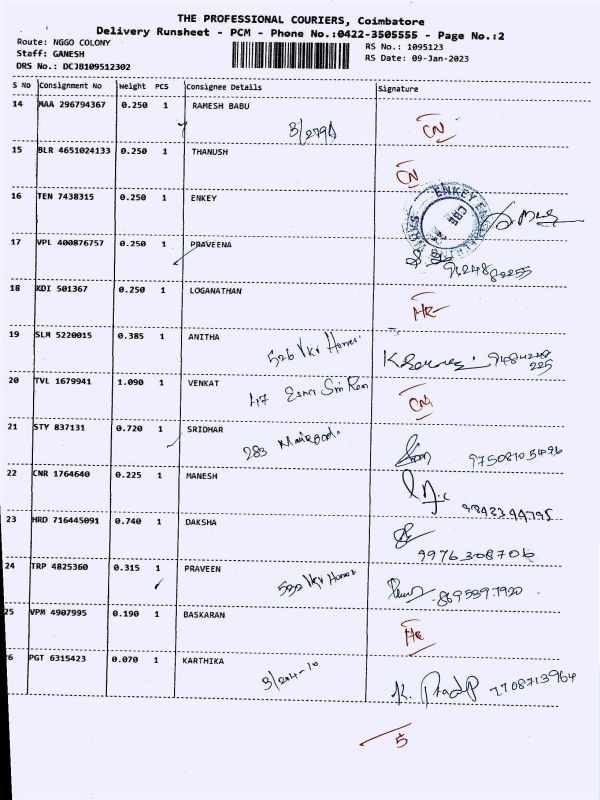 THE PROFESSIONAL COURIERS, Coimbatore
Delivery Runsheet - PCM - Phone No.:0422-3505555 - Page No.:2
Route: NGGO COLONY
RS No.: 1095123
Staff: GANESH
RS Date: 09-Jan-2023
DRS No.: DCJB109512302
S No Consignment No Weight PCS Consignee Details Signature
14 MAA 296794367 0.250 1 RAMESH BABU
CN
15 BLR 4651024133 0.250 1 THANUSH
CN
16 TEN 7438315 0.250 1 ENKEY
ENKEY
17 VPL 400876757 0.250 1 PRAVEENA
18 KDI 501367 0.250 1 LOGANATHAN
19 SLM 5220015 0.385 1 ANITHA
526 Vkv Homes
20 TVL 1679941 1.090 1 VENKAT
CN
21 STY 837131 0.720 1 SRIDHAR
283
97508105496
22 CNR 1764640 0.225 1 MANESH
9843394795
23 HRD 716445091 0.740 1 DAKSHA
9976308706
24 TRP 4825360 0.315 1 PRAVEEN
Vkv Homes
8695397920
25 VPM 4907995 0.190 1 BASKARAN
26 PGT 6315423 0.070 1 KARTHIKA
K. Pradp 7708713964
5